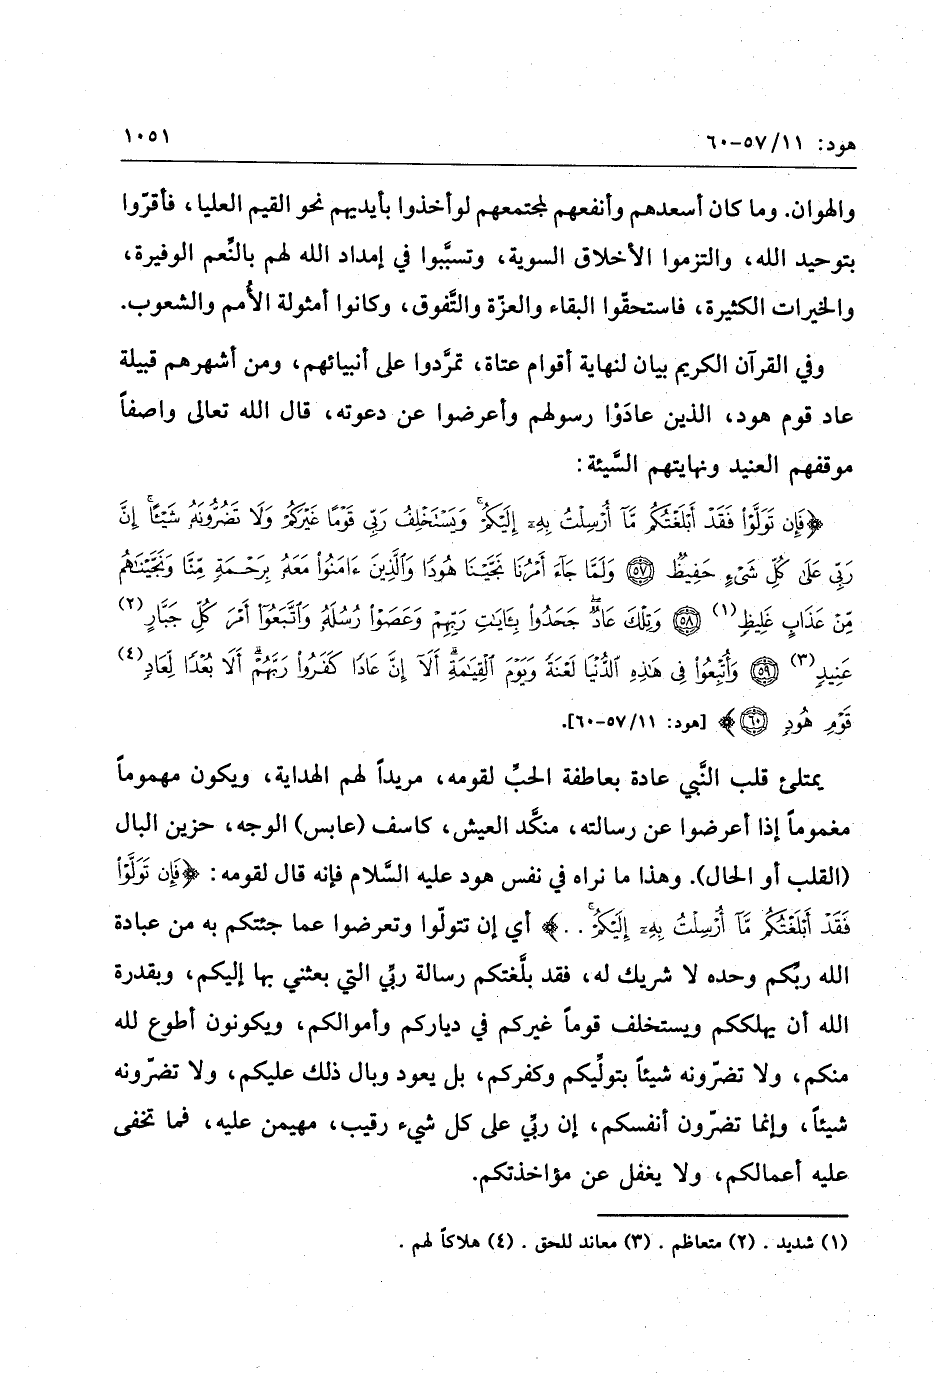 هود: ١١/ ٥٧-٦٠ ١٠٥١
والهوان. وما كان أسعدهم وأنفعهم لمجتمعهم لو أخذوا بأيديهم نحو القيم العليا، فأقرّوا
بتوحيد الله، والتزموا الأخلاق السوية، وتسبَّبوا في إمداد الله لهم بالنِّعم الوفيرة،
والخيرات الكثيرة، فاستحقّوا البقاء والعزّة والتَّفوق، وكانوا أمثولة الأُمم والشعوب.
وفي القرآن الكريم بيان لنهاية أقوام عتاة، تمرَّدوا على أنبيائهم، ومن أشهرهم قبيلة
عاد قوم هود، الذين عادَوْا رسولهم وأعرضوا عن دعوته، قال الله تعالى واصفاً
موقفهم العنيد ونهايتهم السَّيئة:
﴿فَإِن تَوَلَّوْا۟ فَقَدْ أَبْلَغْتُكُم مَّآ أُرْسِلْتُ بِهِۦٓ إِلَيْكُمْ ۚ وَيَسْتَخْلِفُ رَبِّى قَوْمًا غَيْرَكُمْ وَلَا تَضُرُّونَهُۥ شَيْـًٔا ۚ إِنَّ
رَبِّى عَلَىٰ كُلِّ شَىْءٍ حَفِيظٌ ﴿٥٧﴾ وَلَمَّا جَآءَ أَمْرُنَا نَجَّيْنَا هُودًا وَٱلَّذِينَ ءَامَنُوا۟ مَعَهُۥ بِرَحْمَةٍ مِّنَّا وَنَجَّيْنَـٰهُم
مِّنْ عَذَابٍ غَلِيظٍ(١) ﴿٥٨﴾ وَتِلْكَ عَادٌ ۖ جَحَدُوا۟ بِـَٔايَـٰتِ رَبِّهِمْ وَعَصَوْا۟ رُسُلَهُۥ وَٱتَّبَعُوٓا۟ أَمْرَ كُلِّ جَبَّارٍ(٢)
عَنِيدٍ(٣) ﴿٥٩﴾ وَأُتْبِعُوا۟ فِى هَـٰذِهِ ٱلدُّنْيَا لَعْنَةً وَيَوْمَ ٱلْقِيَـٰمَةِ ۗ أَلَآ إِنَّ عَادًا كَفَرُوا۟ رَبَّهُمْ ۗ أَلَا بُعْدًا لِّعَادٍ(٤)
قَوْمِ هُودٍ ﴿٦٠﴾﴾ [هود: ١١/ ٥٧-٦٠].
يمتلئ قلب النَّبي عادة بعاطفة الحبِّ لقومه، مريداً لهم الهداية، ويكون مهموماً
مغموماً إذا أعرضوا عن رسالته، منكَّد العيش، كاسف (عابس) الوجه، حزين البال
(القلب أو الحال). وهذا ما نراه في نفس هود عليه السَّلام فإنه قال لقومه: ﴿فَإِن تَوَلَّوْا۟
فَقَدْ أَبْلَغْتُكُم مَّآ أُرْسِلْتُ بِهِۦٓ إِلَيْكُمْ ۚ ..﴾ أي إن تتولّوا وتعرضوا عما جئتكم به من عبادة
الله ربّكم وحده لا شريك له، فقد بلَّغتكم رسالة ربِّي التي بعثني بها إليكم، وبقدرة
الله أن يهلككم ويستخلف قوماً غيركم في دياركم وأموالكم، ويكونون أطوع لله
منكم، ولا تضرّونه شيئاً بتولِّيكم وكفركم، بل يعود وبال ذلك عليكم، ولا تضرّونه
شيئاً، وإنما تضرّون أنفسكم، إن ربِّي على كل شيء رقيب، مهيمن عليه، فما تخفى
عليه أعمالكم، ولا يغفل عن مؤاخذتكم.
(١) شديد. (٢) متعاظم. (٣) معاند للحق. (٤) هلاكاً لهم.